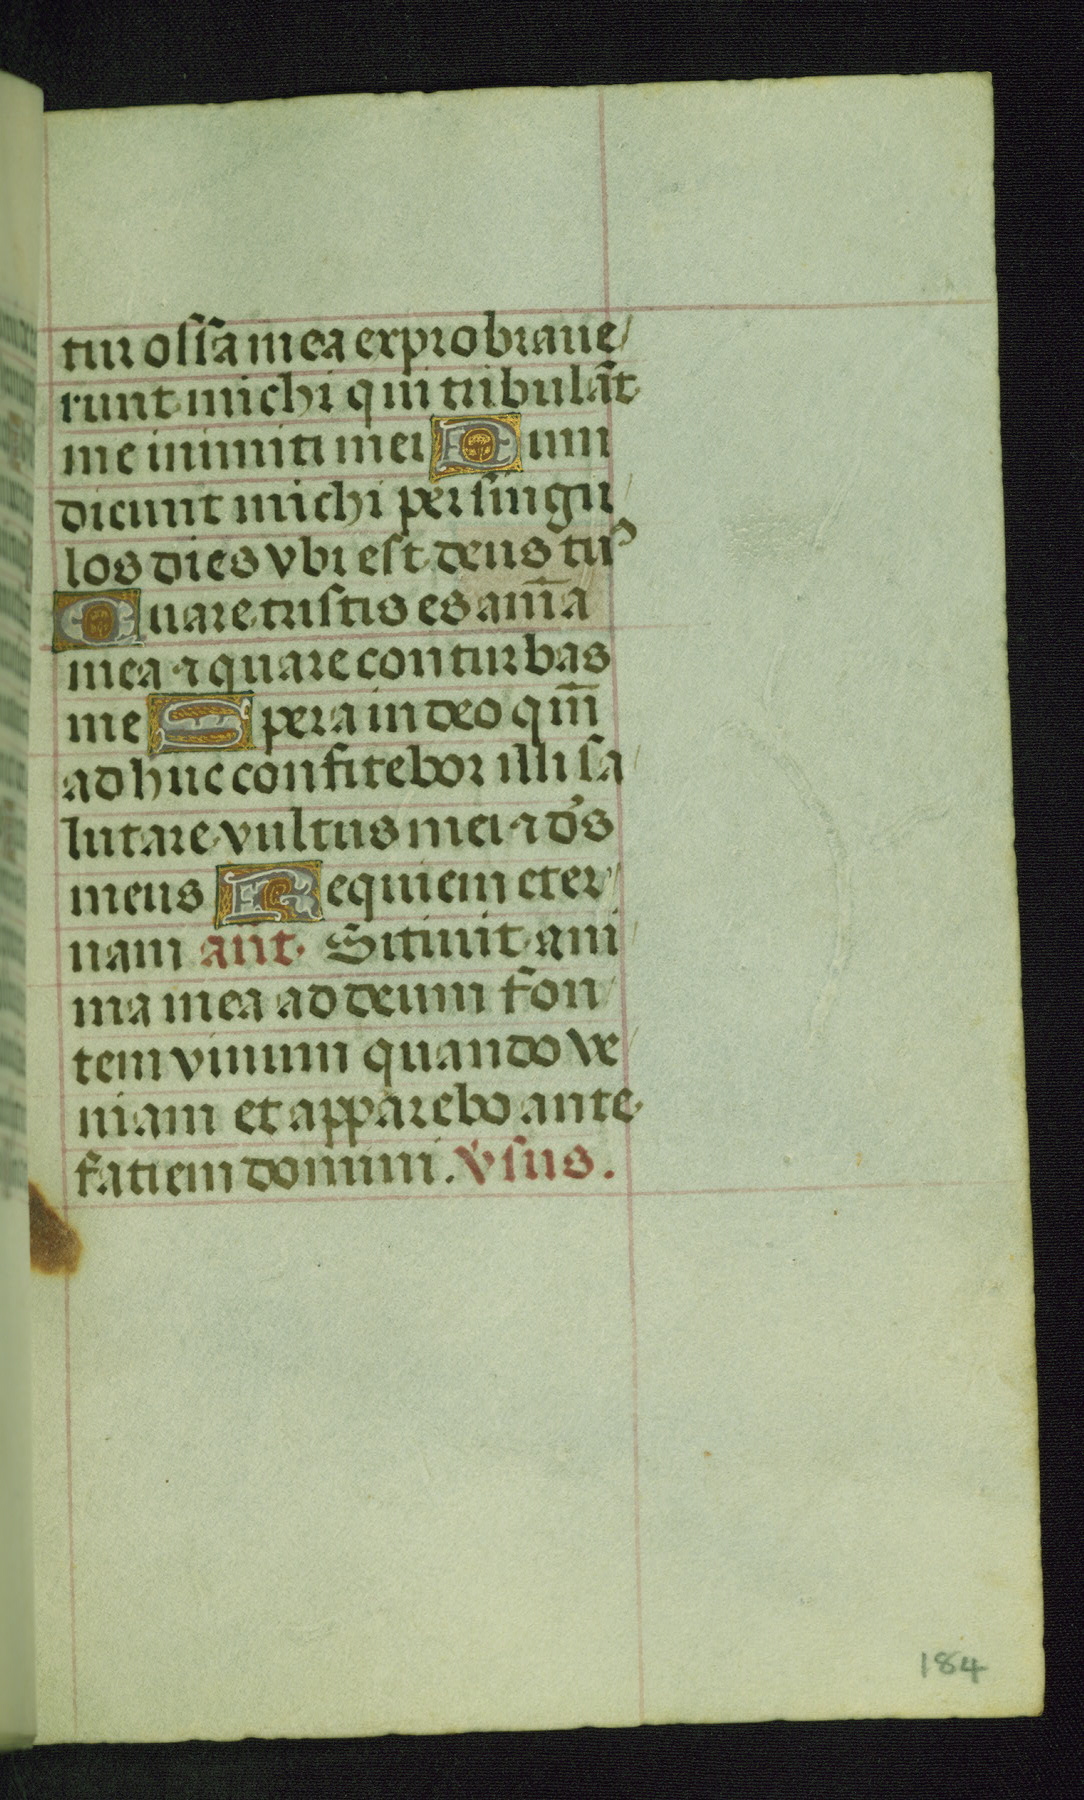 tur ossa mea exprobraue/
runt michi qui tribulāt
me inimici mei Dum
dicunt michi per singu/
los dies vbi est deus tuꝰ
Quare tristis es am̄a
mea ⁊ quare conturbas
me Spera in deo qm̄
adhuc confitebor illi sa/
lutare vultus mei ⁊ de᷒s
meus Requiem eter/
nam ant. Sitiuit ani
ma mea ad deum fon/
tem viuum quando ve/
niam et apparebo ante
faciem domini. v̇sus.
184